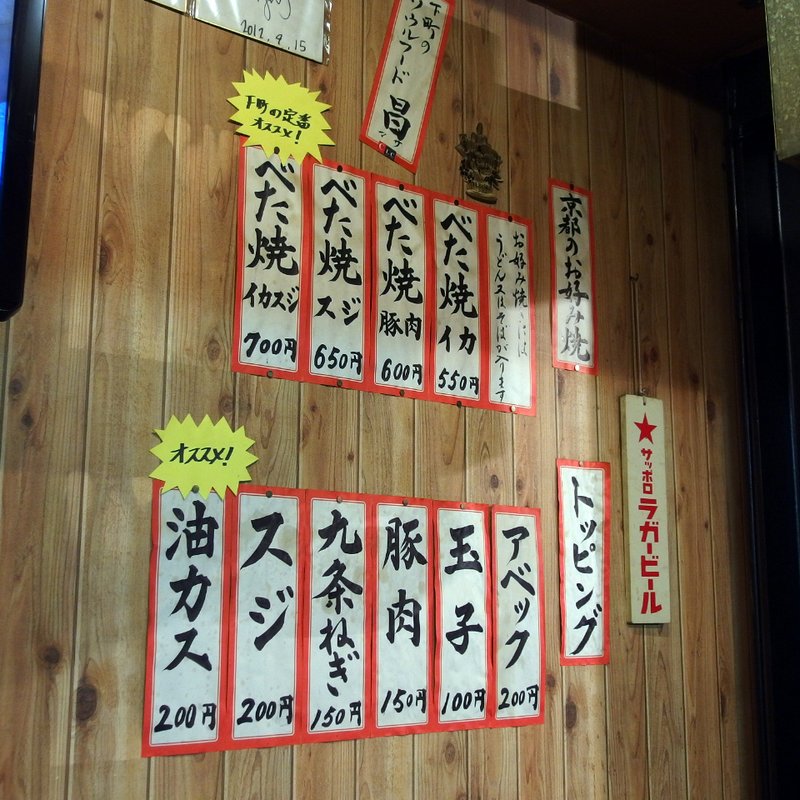 2012.9.15
下町の
ソウルフード
昌
マサ
下町の定番
オススメ!
京都のお好み焼
お好み焼きには
うどん又はそばが入ります
べた焼
イカ
550円
べた焼
豚肉
600円
べた焼
スジ
650円
べた焼
イカスジ
700円
サッポロ
ラガービール
トッピング
アベック
200円
玉子
100円
豚肉
150円
九条ねぎ
150円
スジ
200円
オススメ!
油カス
200円